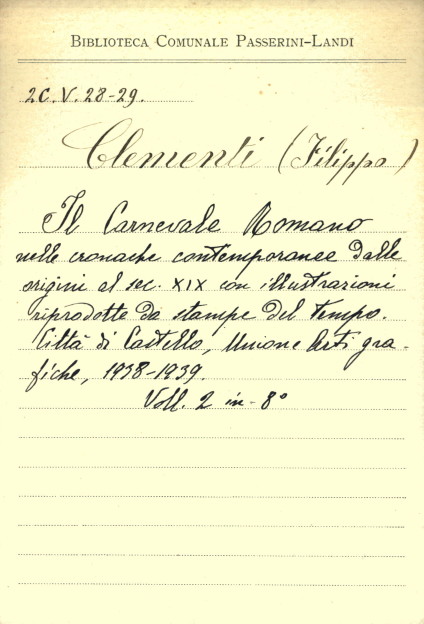 BIBLIOTECA COMUNALE PASSERINI-LANDI
2C.V.28-29.
Clementi (Filippo)
Il Carnevale Romano
nelle cronache contemporanee dalle
origini al sec. XIX con illustrazioni
riprodotte da stampe del tempo.
Città di Castello, Unione Arti gra-
fiche, 1938-1939.
Voll. 2 in-8°